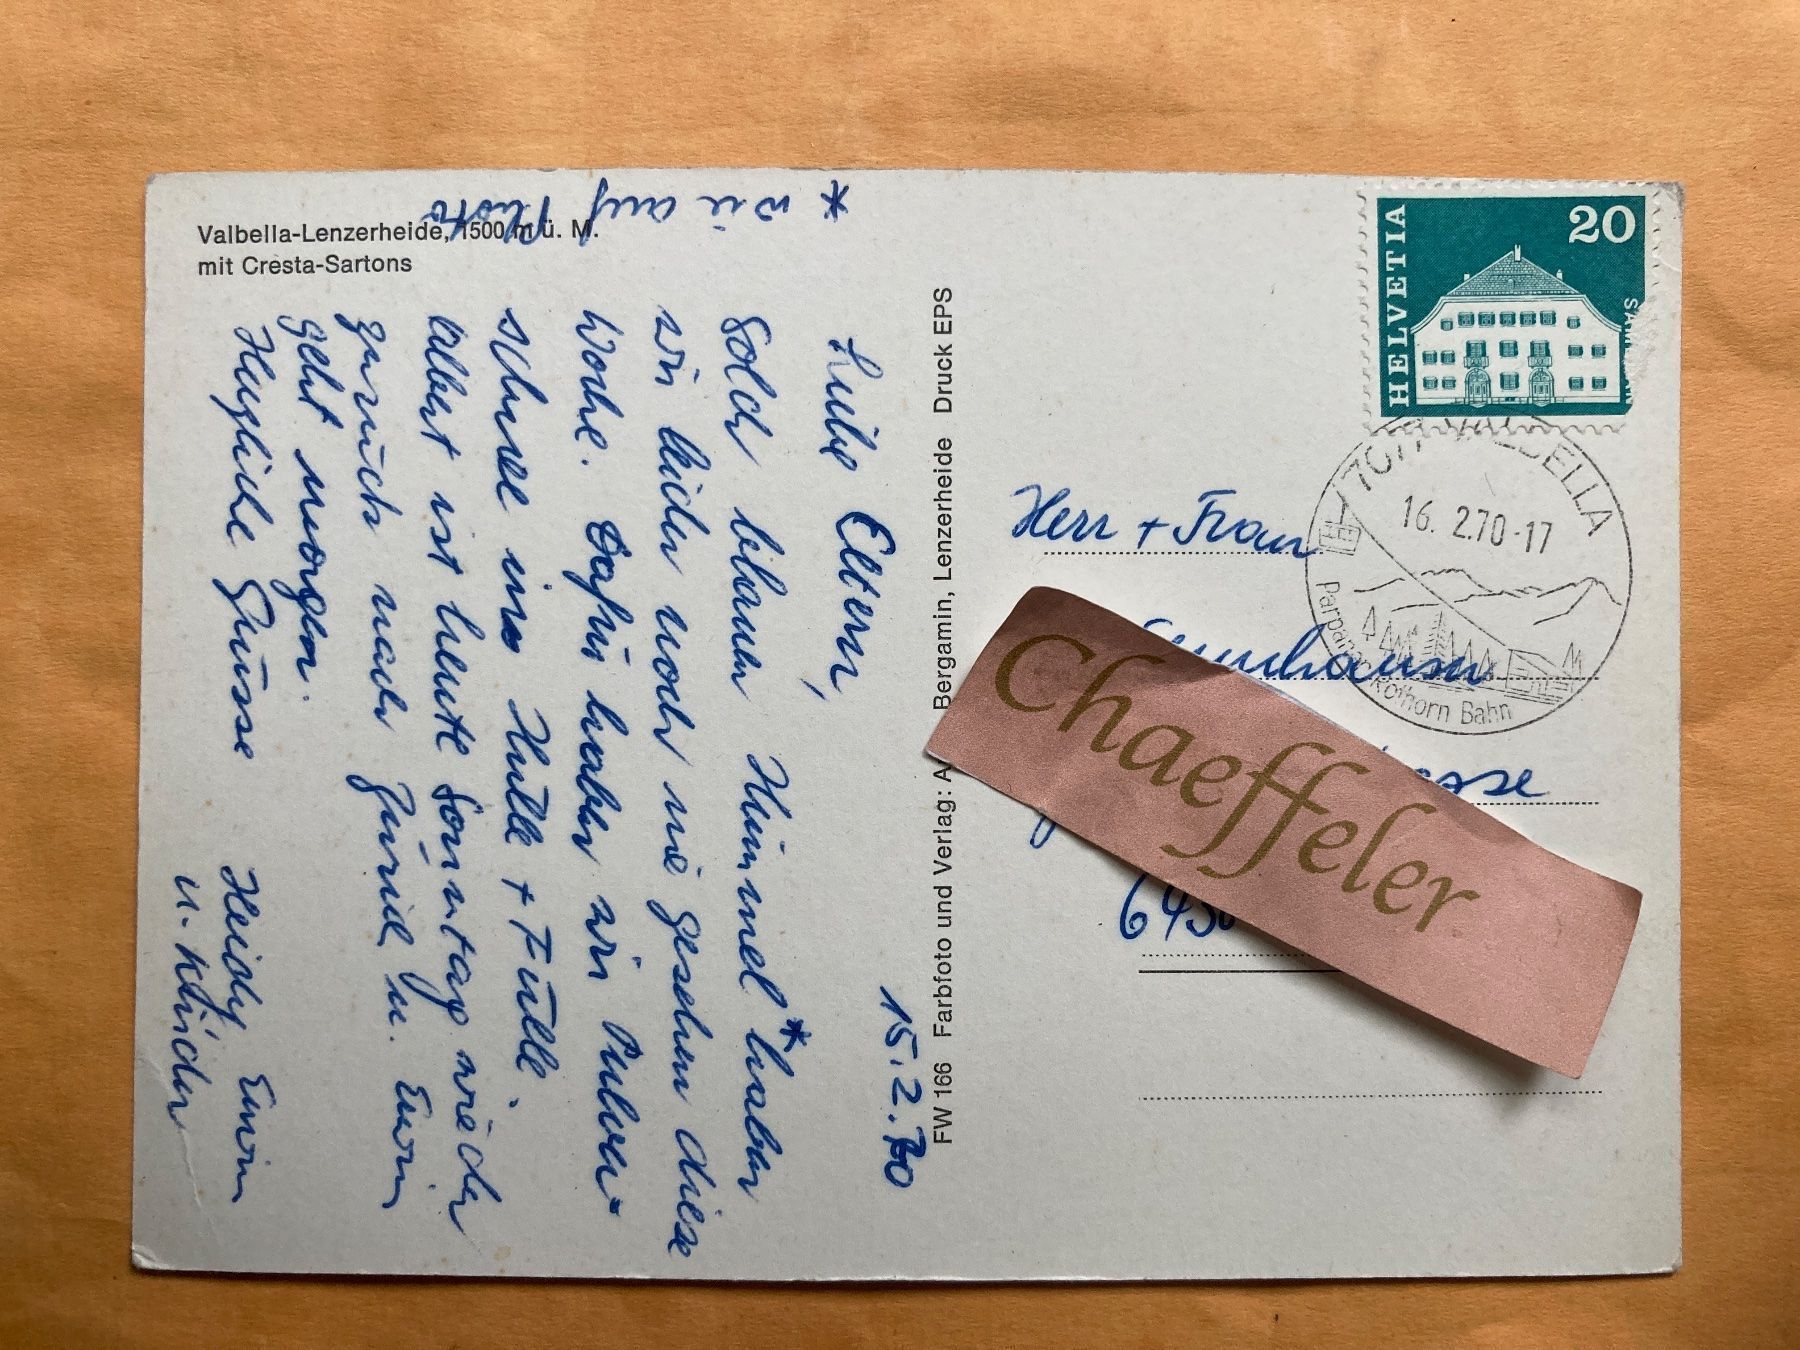 Valbella-Lenzerheide, 1500 m ü. M.
mit Cresta-Sartons
* wie auf Photo
15.2.70
Liebe Eltern,
Solch blauen Himmel* haben
wir leider noch nie gesehen diese
Woche. Dafür haben wir Pulver-
schnee in Hülle + Fülle.
Albert ist heute Sonntag wieder
zurück nach Zürich u. Erwin
geht morgen.
Herzliche Grüsse Heidy Erwin
u. Kinder
FW 166 Farbfoto und Verlag: A. Bergamin, Lenzerheide Druck EPS
HELVETIA
20
VALBELLA
16. 2.70-17
Parpaner Rothorn Bahn
Herr + Frau
Chaeffeler